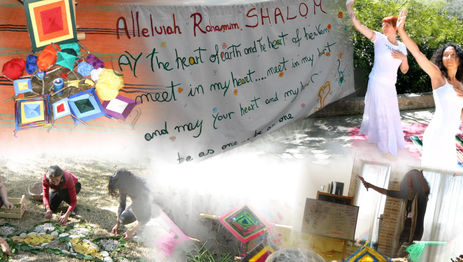 Alleluiah Rahamim, SHALOM
May the heart of earth and the heart of heaven
meet in my heart.... meet in my heart
and may your heart and my heart
be as one... be as one